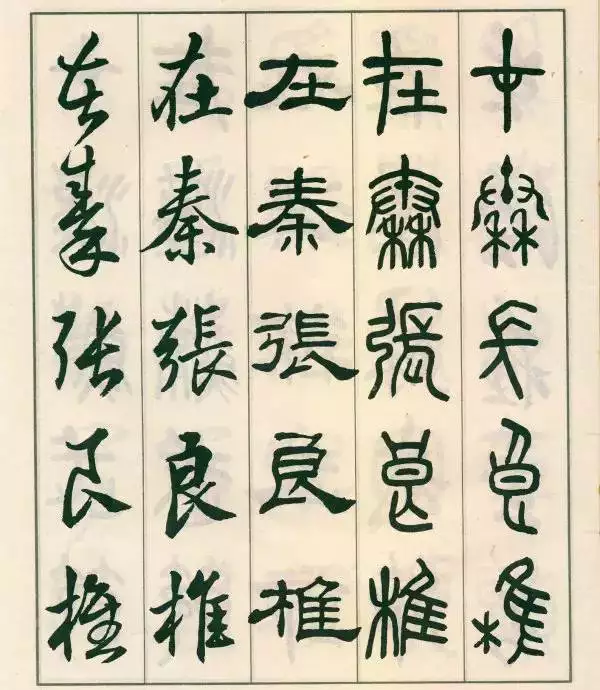 在秦張良椎
在秦張良椎
在秦張良椎
在秦張良椎
在秦张良椎